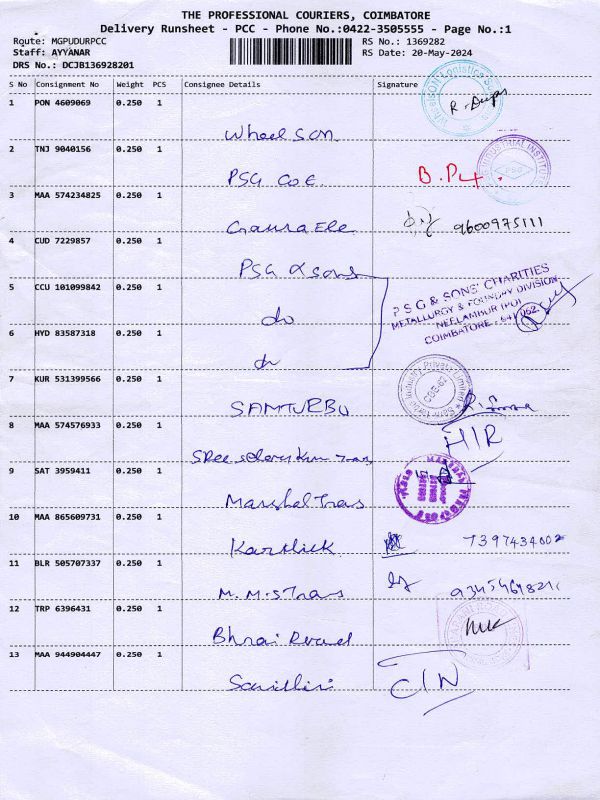 THE PROFESSIONAL COURIERS, COIMBATORE
Delivery Runsheet - PCC - Phone No.:0422-3505555 - Page No.:1
Route: MGPUDURPCC RS No.: 1369282
Staff: AYYANAR RS Date: 20-May-2024
DRS No.: DCJB136928201
S No Consignment No Weight PCS Consignee Details Signature
1 PON 4609069 0.250 1 Wheel SON
2 TNJ 9040156 0.250 1 PSG COE B.P
3 MAA 574234825 0.250 1 Gaura Ele 9600975111
4 CUD 7229857 0.250 1 PSG & sons
5 CCU 101099842 0.250 1 do
P S G & SONS' CHARITIES
METALLURGY & FOUNDRY DIVISION
NEELAMBUR (PO)
COIMBATORE - 641 062.
6 HYD 83587318 0.250 1 do
7 KUR 531399566 0.250 1 SAMTURBO
8 MAA 574576933 0.250 1 Sree Tran H/R
9 SAT 3959411 0.250 1 Marshal Trans
10 MAA 865609731 0.250 1 Karthick 7397434002
11 BLR 505707337 0.250 1 M.M.S Trans
12 TRP 6396431 0.250 1 Road
13 MAA 944904447 0.250 1 Savithiri C/N